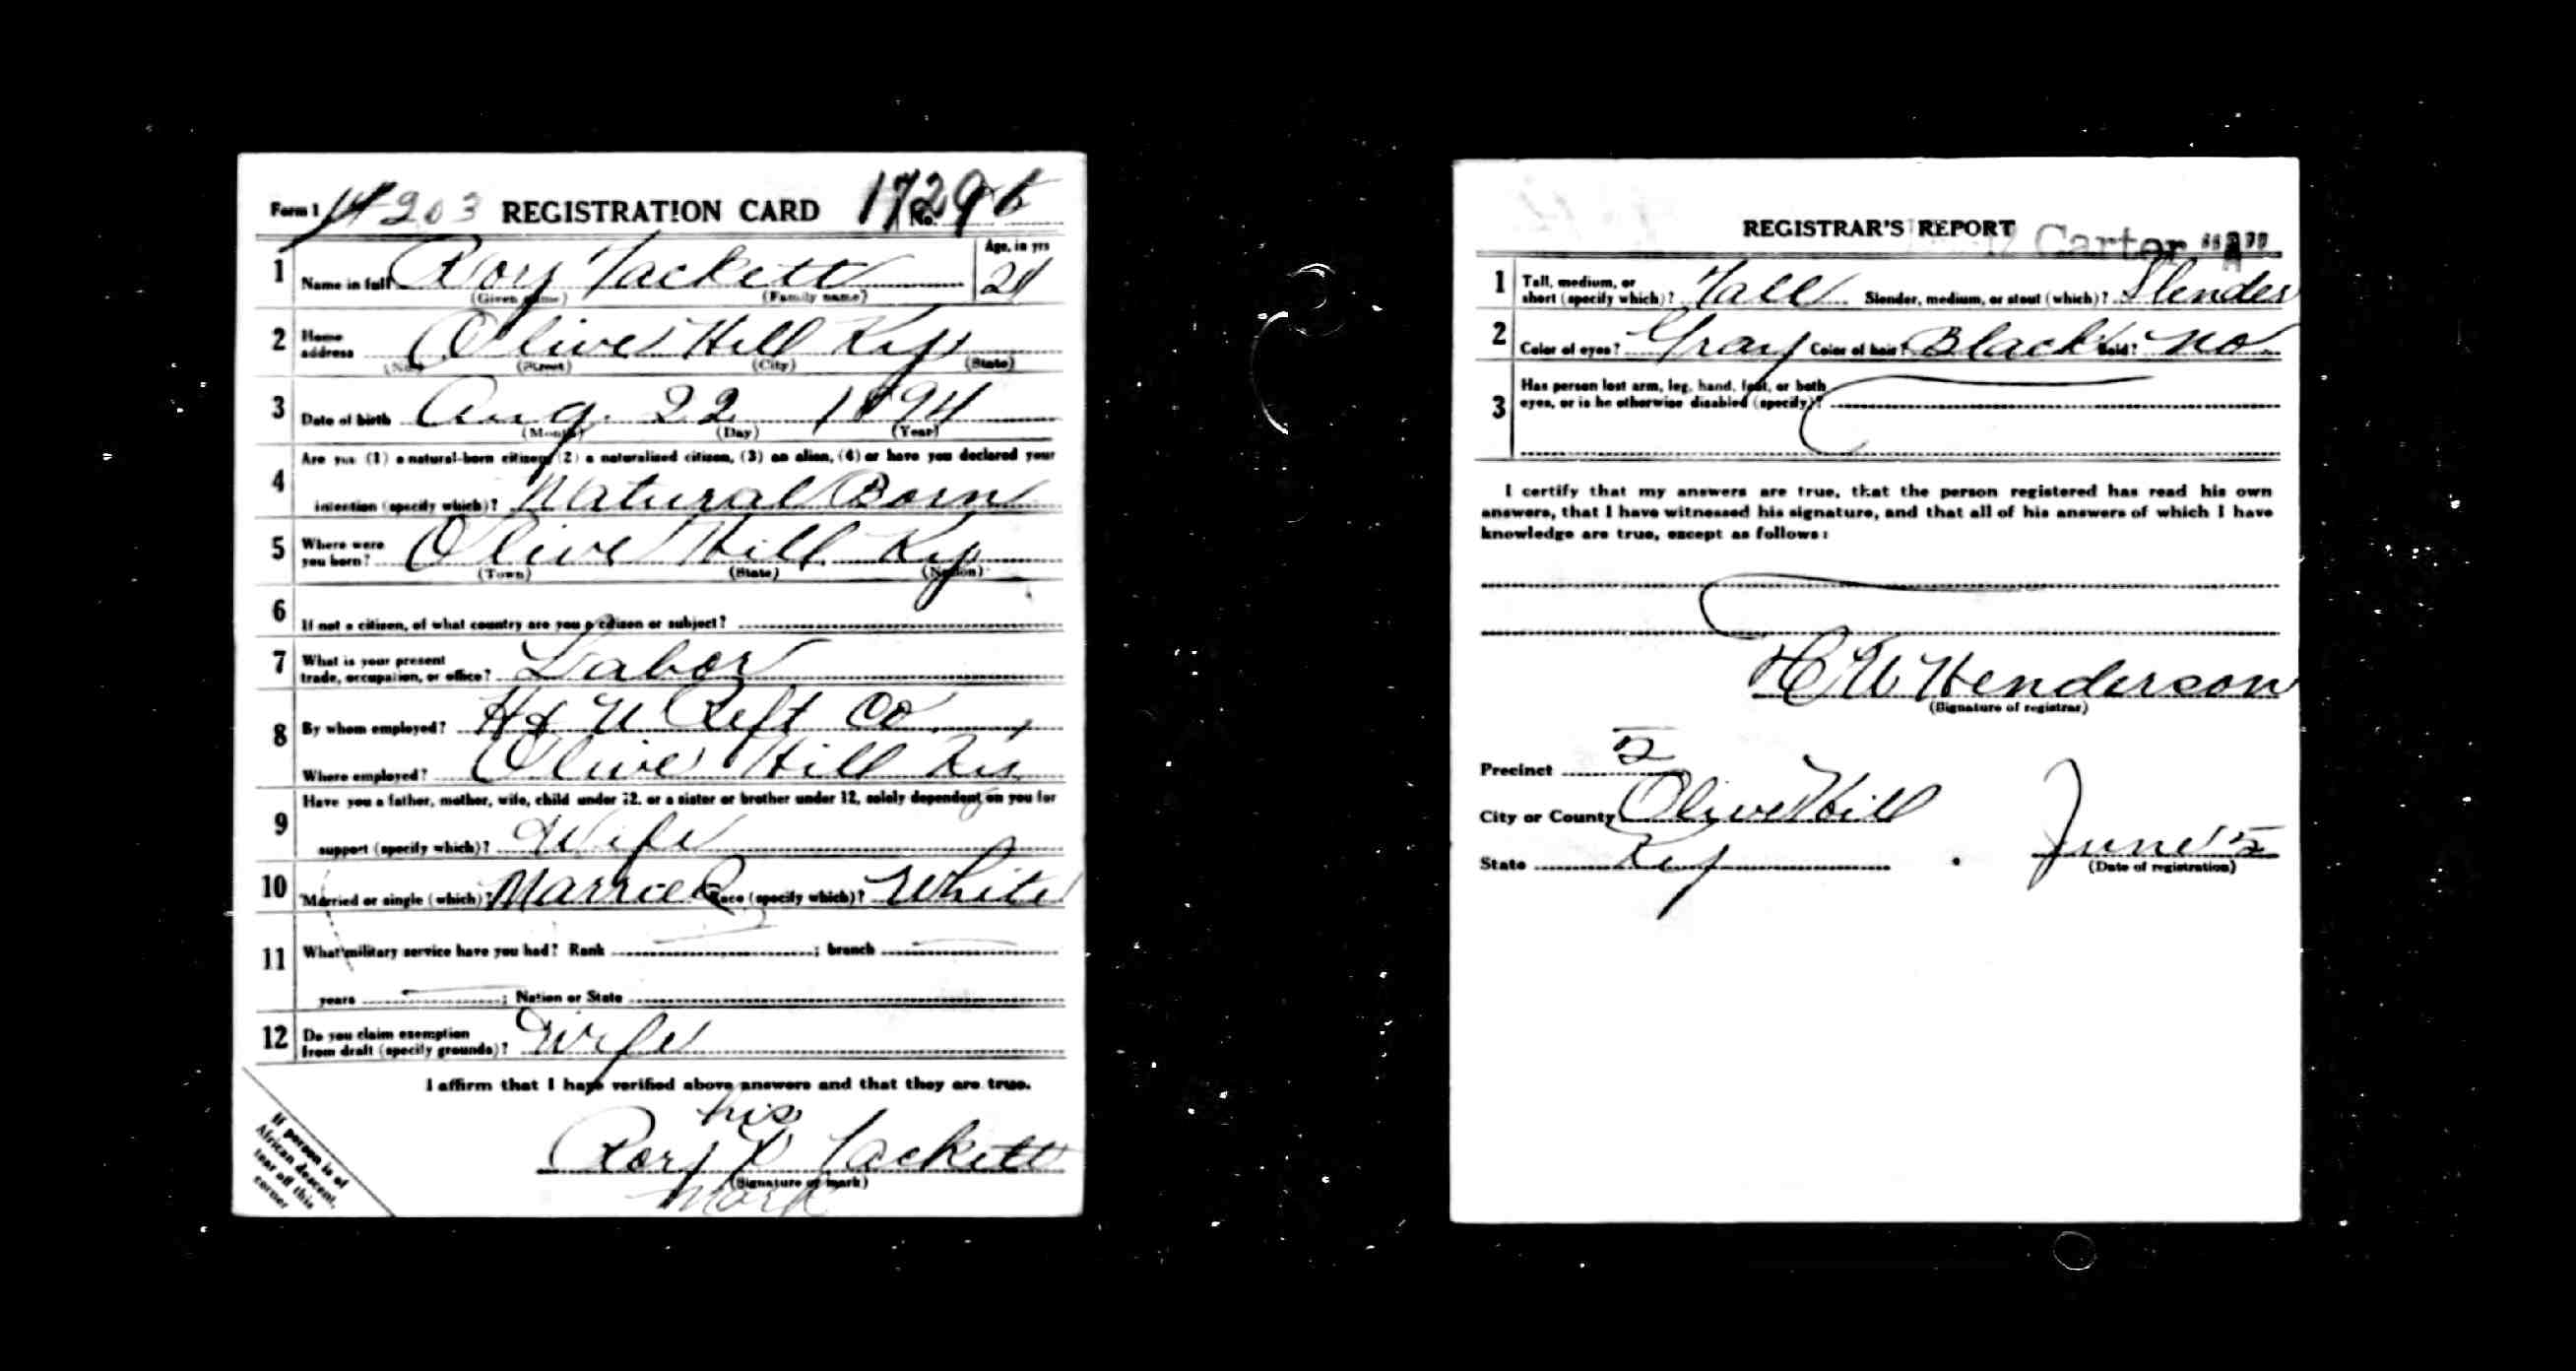 Form 1 203 REGISTRATION CARD No. 1729
Age, in yrs
1 Name in full Roy Tackett 21
(Given name) (Family name)
2 Home address Olive Hill Ky
(No.) (Street) (City) (State)
3 Date of birth Aug. 22 1894
(Month) (Day) (Year)
Are you (1) a natural-born citizen, (2) a naturalized citizen, (3) an alien, (4) or have you declared your
4 intention (specify which)? Natural Born
5 Where were you born? Olive Hill Ky
(Town) (State) (Nation)
6 If not a citizen, of what country are you a citizen or subject?
7 What is your present trade, occupation, or office? Labor
8 By whom employed? H & W Reft Co
Where employed? Olive Hill Ky
Have you a father, mother, wife, child under 12, or a sister or brother under 12, solely dependent on you for
9 support (specify which)? Wife
10 Married or single (which)? Married Race (specify which)? White
11 What military service have you had? Rank ; branch
years ; Nation or State
12 Do you claim exemption from draft (specify grounds)? Wife
I affirm that I have verified above answers and that they are true.
his
Roy X Tackett
(Signature or mark)
mark
If person is of
African descent,
tear off this
corner
REGISTRAR'S REPORT
Carter "A"
1 Tall, medium, or short (specify which)? Tall Slender, medium, or stout (which)? Slender
2 Color of eyes? Gray Color of hair? Black Bald? No
Has person lost arm, leg, hand, foot, or both
3 eyes, or is he otherwise disabled (specify)?
I certify that my answers are true, that the person registered has read his own
answers, that I have witnessed his signature, and that all of his answers of which I have
knowledge are true, except as follows:
Henderson
(Signature of registrar)
Precinct 2
City or County Olive Hill
State Ky June 5
(Date of registration)